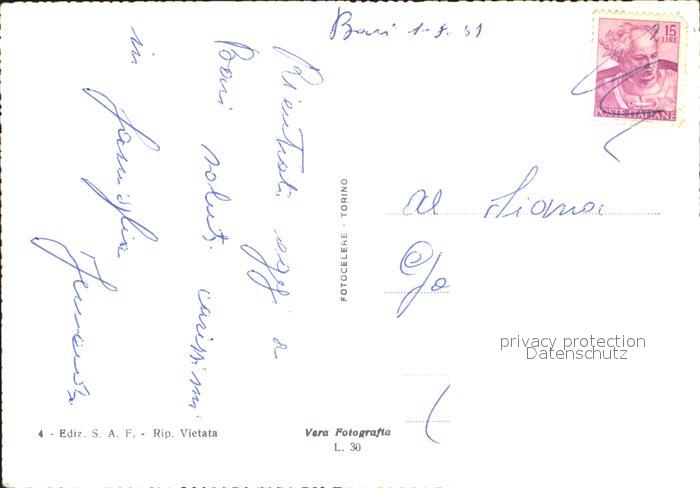 Bari 1-9-
15
LIRE
POSTE ITALIANE
Rientrati oggi a
Bari saluti carissimi
in famiglia
FOTOCELERE - TORINO
al
privacy protection
Datenschutz
4 - Ediz. S. A. F. - Rip. Vietata
Vera Fotografia
L. 30